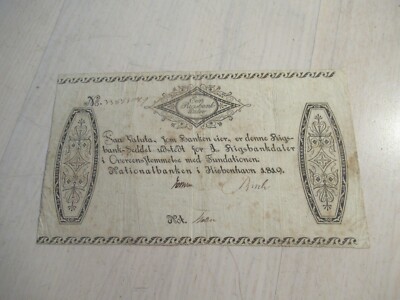 No.
Een
Rigsbank
Daler
Saa Valuta, som Banken eier, er denne Rigs-
bank-Seddel udstedt for 1 Rigsbankdaler
i Overeensstemmelse med Fundationen.
Nationalbanken i Kiøbenhavn 1819.
Not.